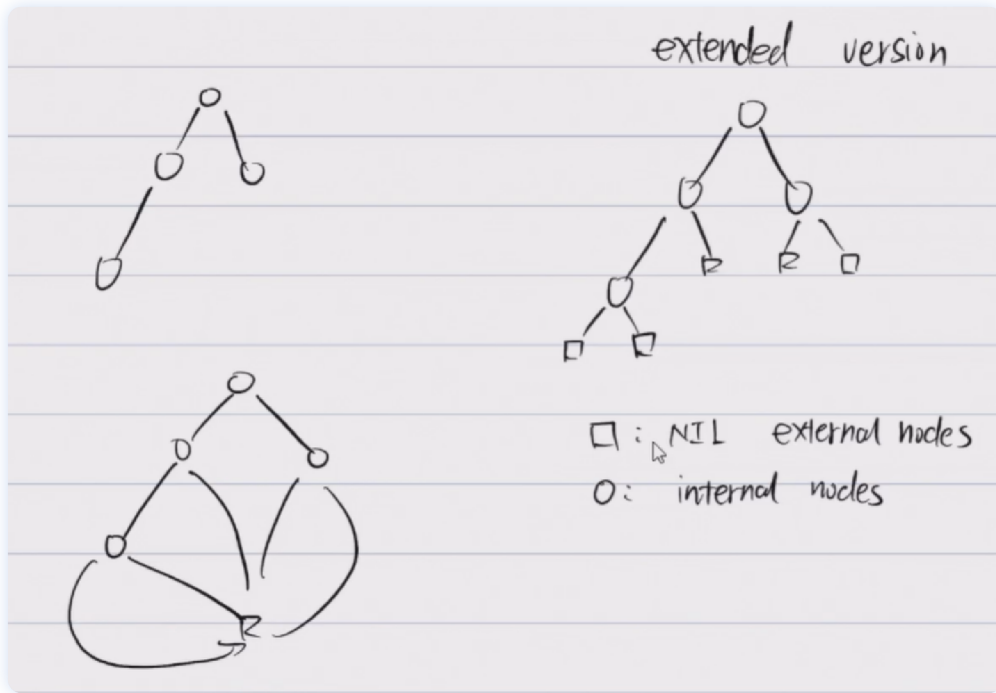 extended version
□ : NIL external nodes
○ : internal nodes